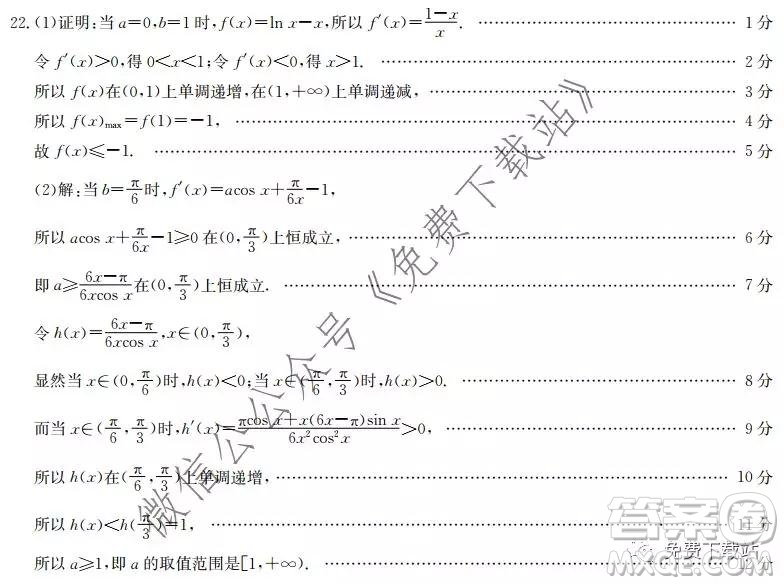 22.(1)证明:当 a=0,b=1 时,f(x)=ln x-x,所以 f′(x)=\frac{1-x}{x}. …… 1 分
令 f′(x)>0,得 0<x<1;令 f′(x)<0,得 x>1. …… 2 分
所以 f(x)在(0,1)上单调递增,在(1,+∞)上单调递减, …… 3 分
所以 f(x)_{max}=f(1)=-1, …… 4 分
故 f(x)≤-1. …… 5 分
(2)解:当 b=\frac{π}{6}时,f′(x)=acos x+\frac{π}{6x}-1,
所以 acos x+\frac{π}{6x}-1≥0 在(0,\frac{π}{3})上恒成立, …… 6 分
即 a≥\frac{6x-π}{6xcos x}在(0,\frac{π}{3})上恒成立. …… 7 分
令 h(x)=\frac{6x-π}{6xcos x},x∈(0,\frac{π}{3}),
显然当 x∈(0,\frac{π}{6})时,h(x)<0;当 x∈(\frac{π}{6},\frac{π}{3})时,h(x)>0. …… 8 分
而当 x∈(\frac{π}{6},\frac{π}{3})时,h′(x)=\frac{πcos x+x(6x-π)sin x}{6x²cos²x}>0, …… 9 分
所以 h(x)在(\frac{π}{6},\frac{π}{3})上单调递增, …… 10 分
所以 h(x)<h(\frac{π}{3})=1, …… 11 分
所以 a≥1,即 a 的取值范围是[1,+∞). …… 12 分
微信公众号《免费下载站》
答案卷
免费下载站